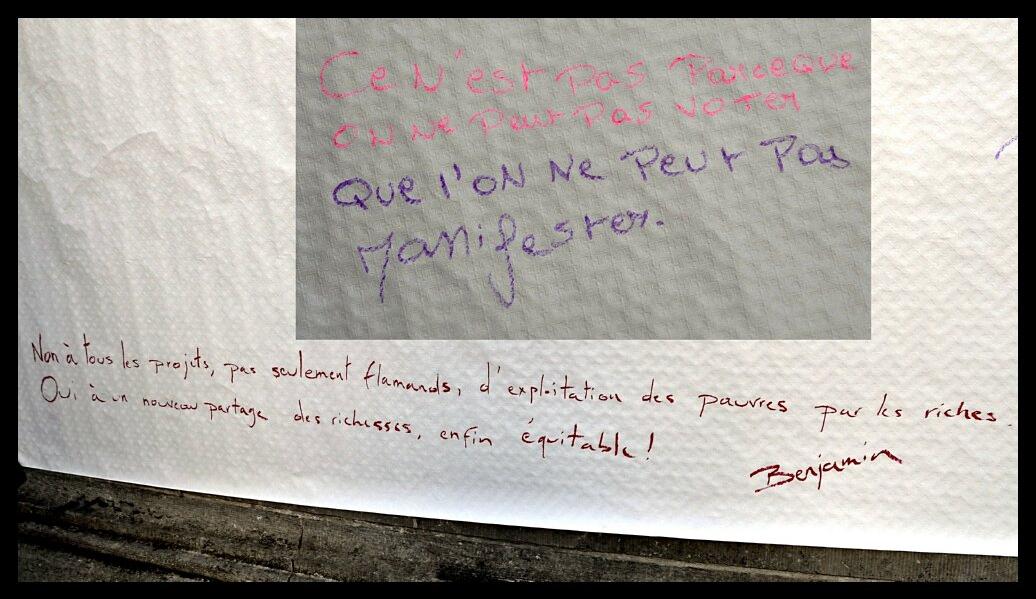 Ce N'est Pas Parceque
ON Ne Peut Pas Voter
Que l'oN Ne Peut Pas
Manifester.
Non à tous les projets, pas seulement flamands, d'exploitation des pauvres par les riches.
Oui à un nouveau partage des richesses, enfin équitable!
Benjamin